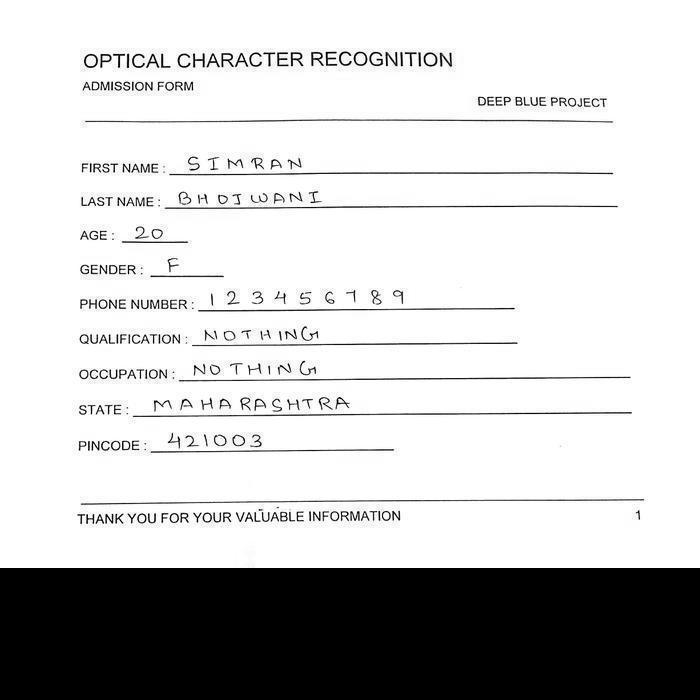 OPTICAL CHARACTER RECOGNITION
ADMISSION FORM
DEEP BLUE PROJECT
FIRST NAME : SIMRAN
LAST NAME : BHOJWANI
AGE : 20
GENDER : F
PHONE NUMBER : 1 2 3 4 5 6 7 8 9
QUALIFICATION : NOTHING
OCCUPATION : NOTHING
STATE : MAHARASHTRA
PINCODE : 421003
THANK YOU FOR YOUR VALUABLE INFORMATION 1